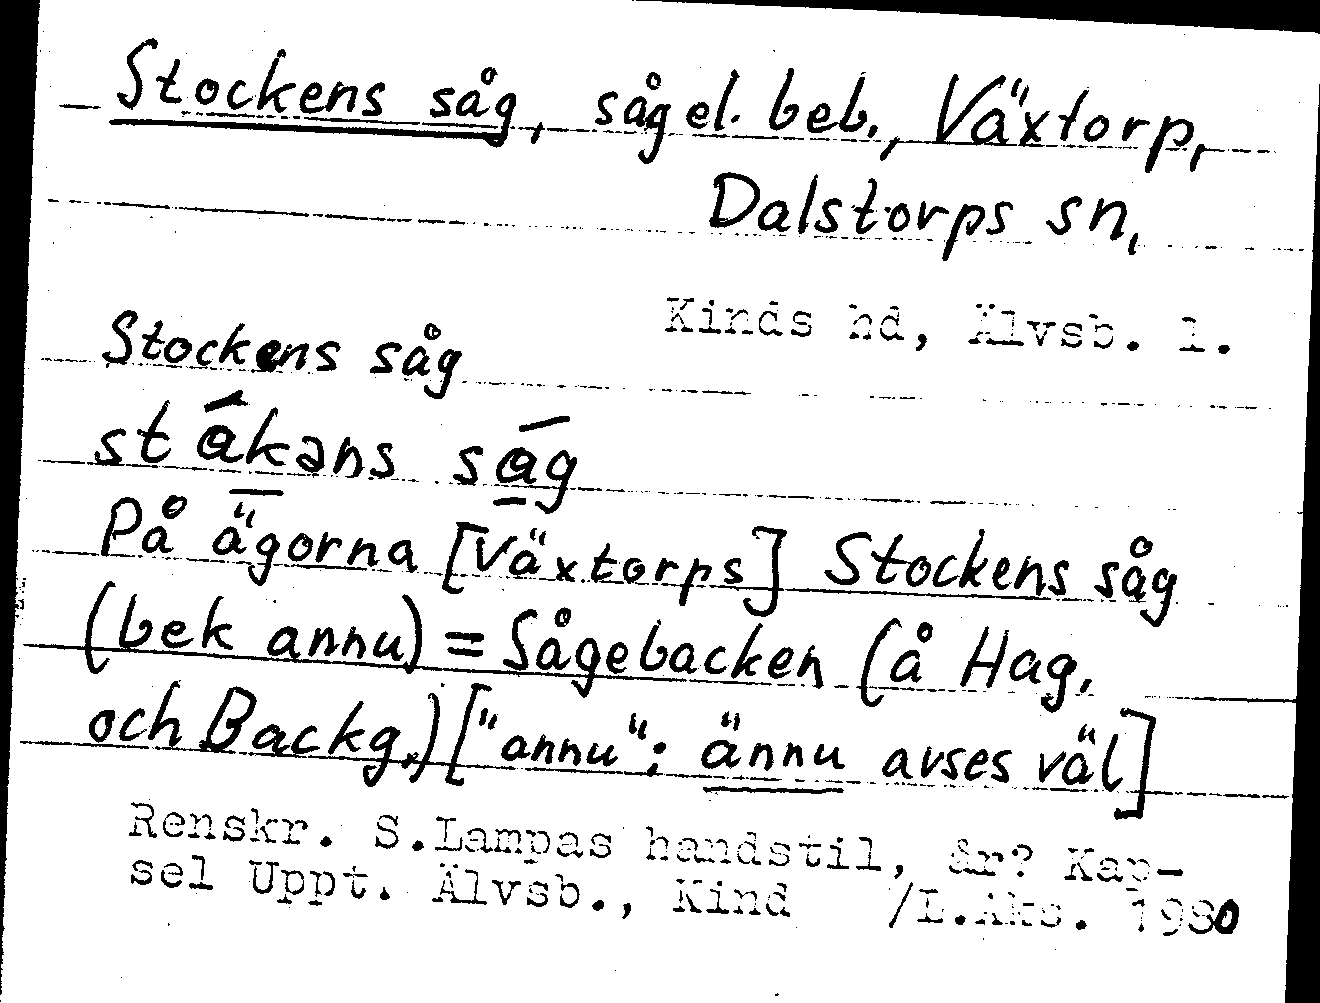 Stockens såg, såg el. beb., Växtorp,
Dalstorps sn,
Kinds hd, Älvsb. l.
Stockens såg
ståkəns såg
På ägorna [Växtorps] Stockens såg
(bek annu) = Sågebacken (å Hag.
och Backg.) ["annu": ännu avses väl]
Renskr. S.Lampas handstil, år? Kap-
sel Uppt. Älvsb., Kind /L.Aks. 1980